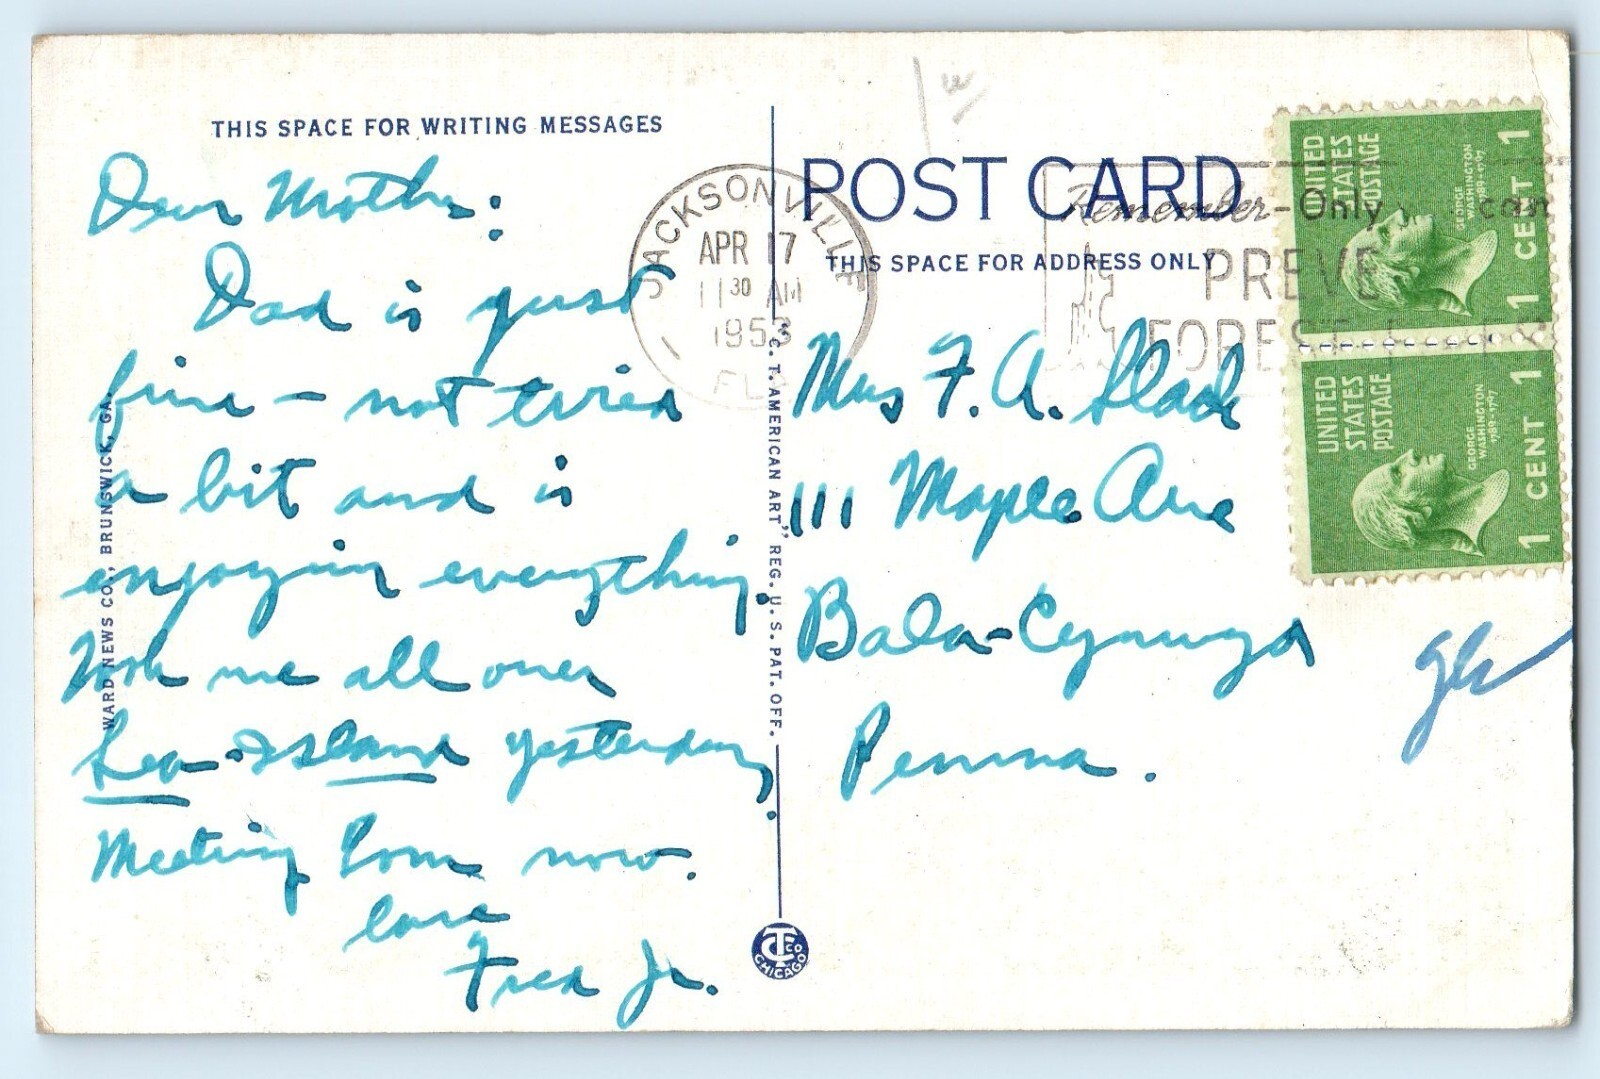 THIS SPACE FOR WRITING MESSAGES
Dear Mother:
Dad is just
fine - not tired
a bit and is
enjoying everything.
me all over
Sea Island yesterday.
Meeting Tom now.
Love
Fred Jr.
WARD NEWS CO., BRUNSWICK, GA.
"C. T. AMERICAN ART" REG. U. S. PAT. OFF.
CT CO CHICAGO
POST CARD
THIS SPACE FOR ADDRESS ONLY
JACKSONVILLE
APR 17
11 30 AM
1953
FLA
Remember-Only can
PREVE
FOREST
UNITED STATES POSTAGE
GEORGE WASHINGTON
1789-1797
1 CENT 1
UNITED STATES POSTAGE
GEORGE WASHINGTON
1789-1797
1 CENT 1
Mrs F. A. Slack
111 Maple Ave
Bala-Cynwyd
Penna.